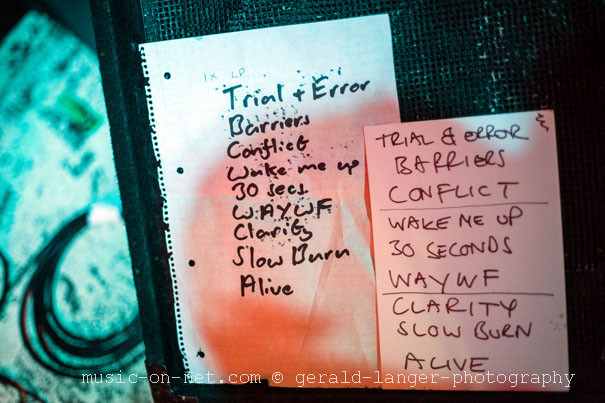 1x LP
Trial + Error
Barriers
Conflict
Wake me up
30 secs
WAYWF
Clarity
Slow Burn
Alive
TRIAL & ERROR
BARRIERS
CONFLICT
WAKE ME UP
30 SECONDS
WAYWF
CLARITY
SLOW BURN
ALIVE
music-on-net.com © gerald-langer-photography